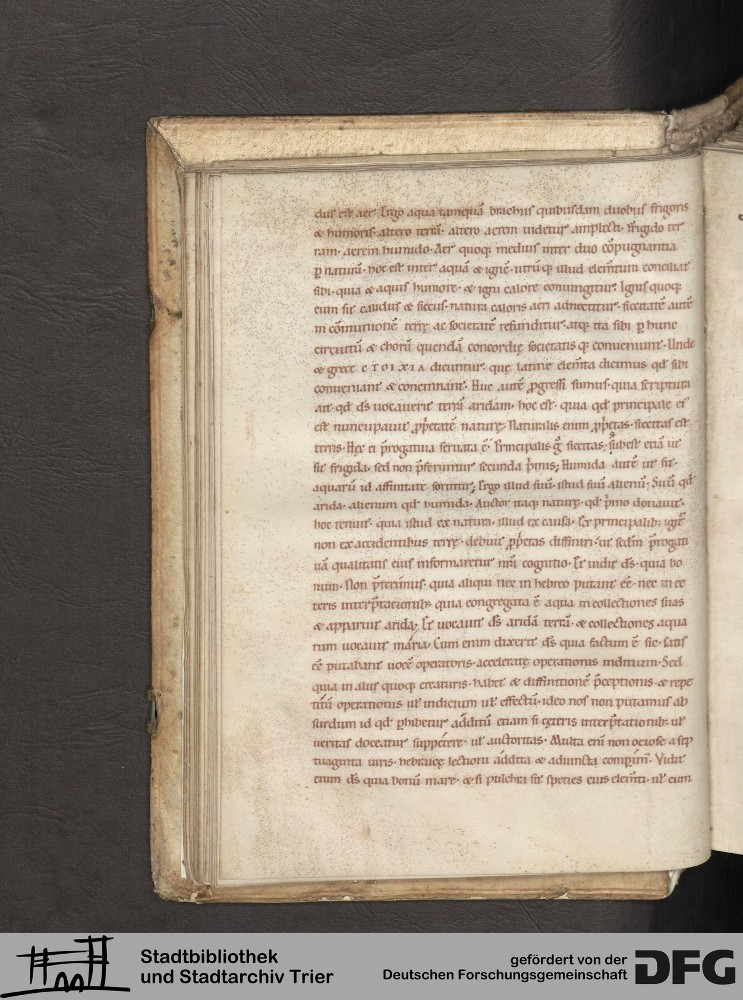 dus est aer. Ergo aqua tamquā brachiis quibusdam duobus frigoris
& humoris. altero terrā. altero aerem uidetur amplecti. frigido ter
ram. aerem humido. Aer quoq; medius inter duo cōpugnantia
ꝑ naturā. hoc est inter aquā & ignē. utrūq; illud elem̄tum conciliat
sibi. quia & aquis humore. & igni calore coniungitur. Ignis quoq;
cum sit calidus & siccus. natura caloris aeri adnectitur. siccitate autē
in cōmunionē terrę ac societatē refunditur. atq; ita sibi ꝑ hunc
circuitū & chorū quendā concordię societatis q; conueniunt. Unde
& grece CTOIXIA dicuntur. quę latine elem̄ta dicimus qd sibi
conueniant & concinnant. Huc autē ꝓgressi sumus. quia scriptura
ait. qd d̄s uocauerit terrā aridam. hoc est. quia qd principale ei
est nuncupauit ꝓp̄etatē naturę. Naturalis enim ꝓp̄etas. siccitas est
terris. Hęc ei p̄rogatiua seruata ē. Principalis g̊ siccitas. subest etiā ut
sit frigida. sed non p̄feruntur secunda p̄mis; Humida autē ut sit.
aquarū id affinitate sortitur; Ergo illud suū. istud suū alienū. Suū qd
arida. alienum qd humida. Auctor itaq; naturę. qd p̄mo donauit.
hoc tenuit. quia istud ex natura. illud ex causa. Ex principalib; igit̄
non ex accidentibus terrę. debuit ꝓp̄etas diffiniri. ut scdm p̄rogati
uā qualitatis eius informaretur nr̄a cognitio. Et uidit d̄s. quia bo
num. Non p̄terimus. quia aliqui nec in hebreo putant eē. nec in ce
teris interp̄tationib; quia congregata ē aqua in collectiones suas
& apparuit arida. Et uocauit d̄s aridā terrā. & collectiones aqua
rum uocauit maria. Cum enim dixerit d̄s quia factum ē sic. satis
eē putabant uocē operatoris. acceleratę operationis indicium. Sed
quia in aliis quoq; creaturis. habet & diffinitionē p̄ceptionis. & repe
titū operationis ul̄ indicium ul̄ effectū. ideo nos non putamus ab
surdum id qd ꝑhibetur additū etiam si ceteris interp̄tationib; ul̄
ueritas doceatur suppetere. ul̄ auctoritas. Multa eni non otiose a sep
tuaginta uiris. hebraicę lectioni addita & adiuncta comperim̄. Vidit
enim d̄s quia bonū mare. & si pulchra sit species eius elem̄ti. ul̄ cum
Stadtbibliothek
und Stadtarchiv Trier
gefördert von der
Deutschen Forschungsgemeinschaft
DFG